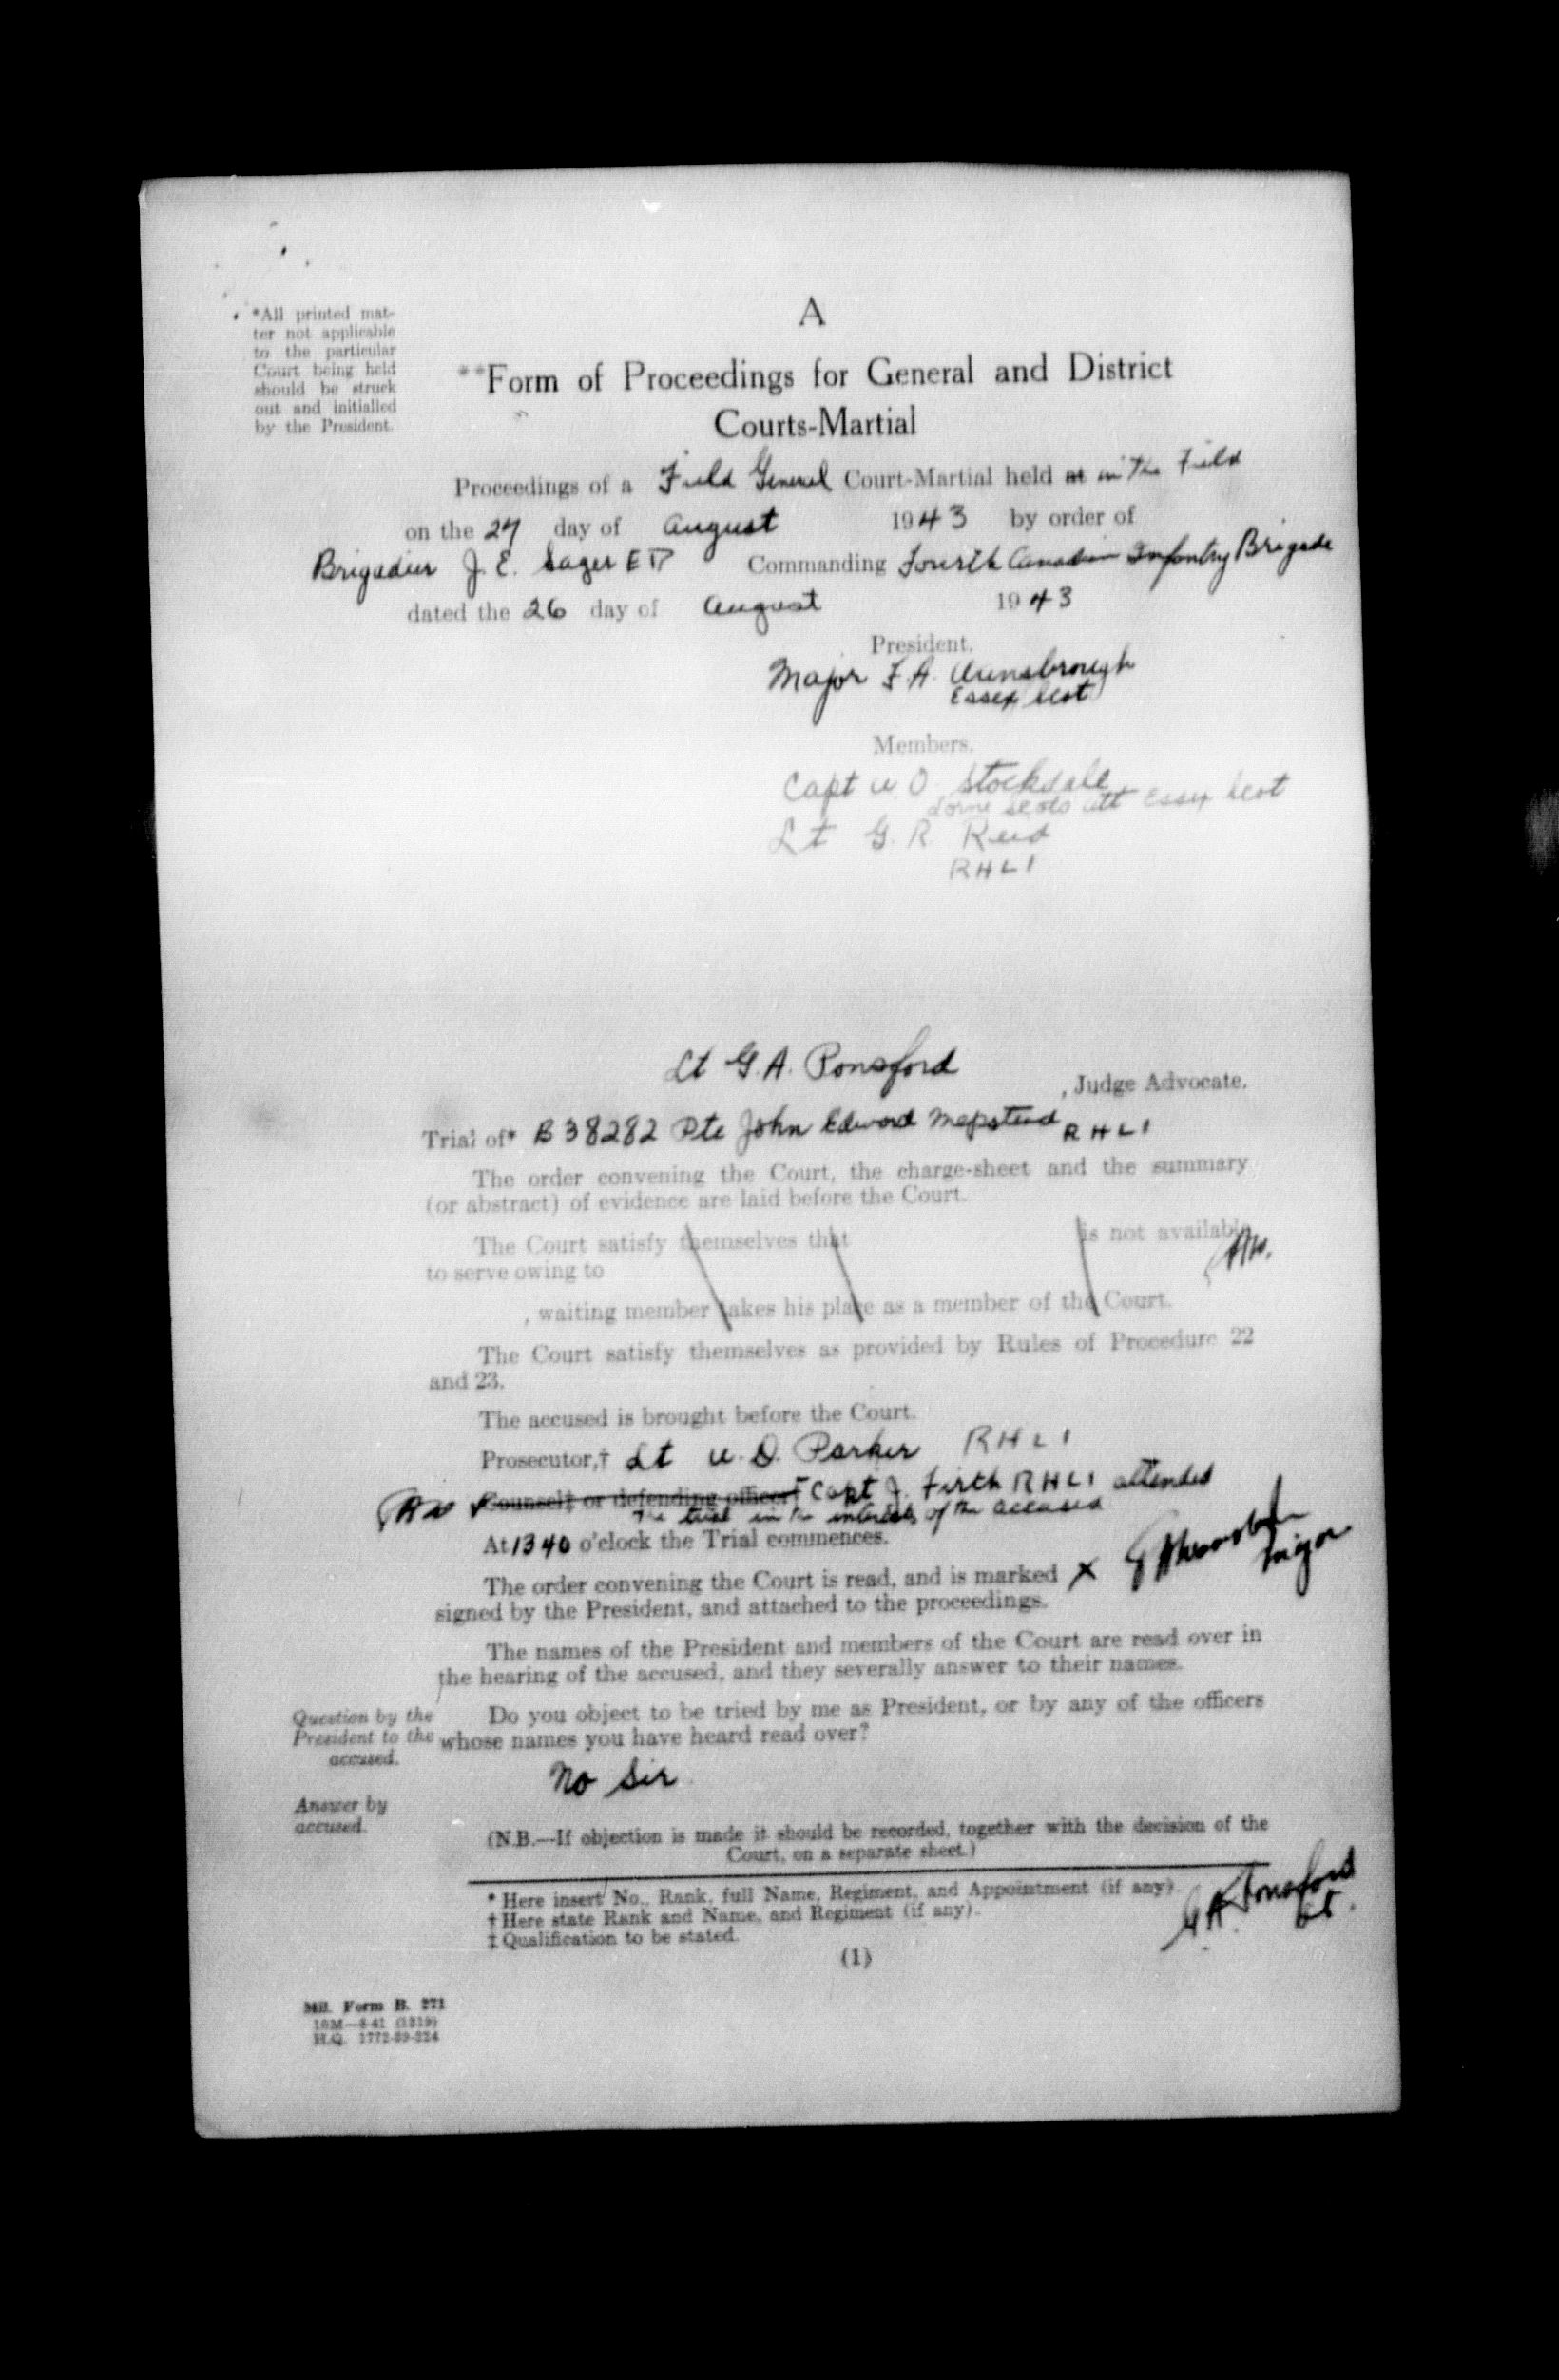 A
*All printed mat-
ter not applicable
to the particular
Court being held
should be struck
out and initialled
by the President.
**Form of Proceedings for General and District
Courts-Martial
Proceedings of a Field General Court-Martial held at in The Field
on the 27 day of August 1943 by order of
Brigadier J. E. Sager ED Commanding Fourth Canadian Infantry Brigade
dated the 26 day of August 1943
President.
Major F. A.
Essex Scot
Members.
Capt W. O. Stocksdale
Lorne Scots att Essex Scot
Lt G. R. Reid
RHLI
Lt G. A. Ponsford
, Judge Advocate.
Trial of* B38282 Pte John Edward Mapstead RHLI
The order convening the Court, the charge-sheet and the summary
(or abstract) of evidence are laid before the Court.
The Court satisfy themselves that is not available
to serve owing to
, waiting member takes his place as a member of the Court.
The Court satisfy themselves as provided by Rules of Procedure 22
and 23.
The accused is brought before the Court.
Prosecutor,† Lt W. D. Parker RHLI
Counsel‡ or defending officer† Capt J. Firth RHLI attended
The trial in the interests of the accused
At 1340 o'clock the Trial commences.
The order convening the Court is read, and is marked X Major
signed by the President, and attached to the proceedings.
The names of the President and members of the Court are read over in
the hearing of the accused, and they severally answer to their names.
Question by the
President to the
accused.
Do you object to be tried by me as President, or by any of the officers
whose names you have heard read over?
No Sir
Answer by
accused.
(N.B.—If objection is made it should be recorded, together with the decision of the
Court, on a separate sheet.)
* Here insert No., Rank, full Name, Regiment, and Appointment (if any).
† Here state Rank and Name, and Regiment (if any).
‡ Qualification to be stated.
G A Ponsford
Lt.
(1)
Mil. Form B. 271
10M—8-41 (1319)
H.Q. 1772-39-224